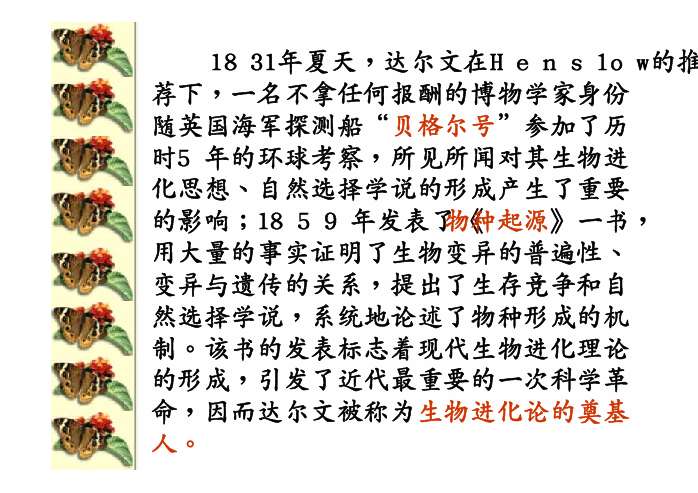 1831年夏天，达尔文在Henslow的推
荐下，一名不拿任何报酬的博物学家身份
随英国海军探测船“贝格尔号”参加了历
时5年的环球考察，所见所闻对其生物进
化思想、自然选择学说的形成产生了重要
的影响；1859年发表了《物种起源》一书，
用大量的事实证明了生物变异的普遍性、
变异与遗传的关系，提出了生存竞争和自
然选择学说，系统地论述了物种形成的机
制。该书的发表标志着现代生物进化理论
的形成，引发了近代最重要的一次科学革
命，因而达尔文被称为生物进化论的奠基
人。